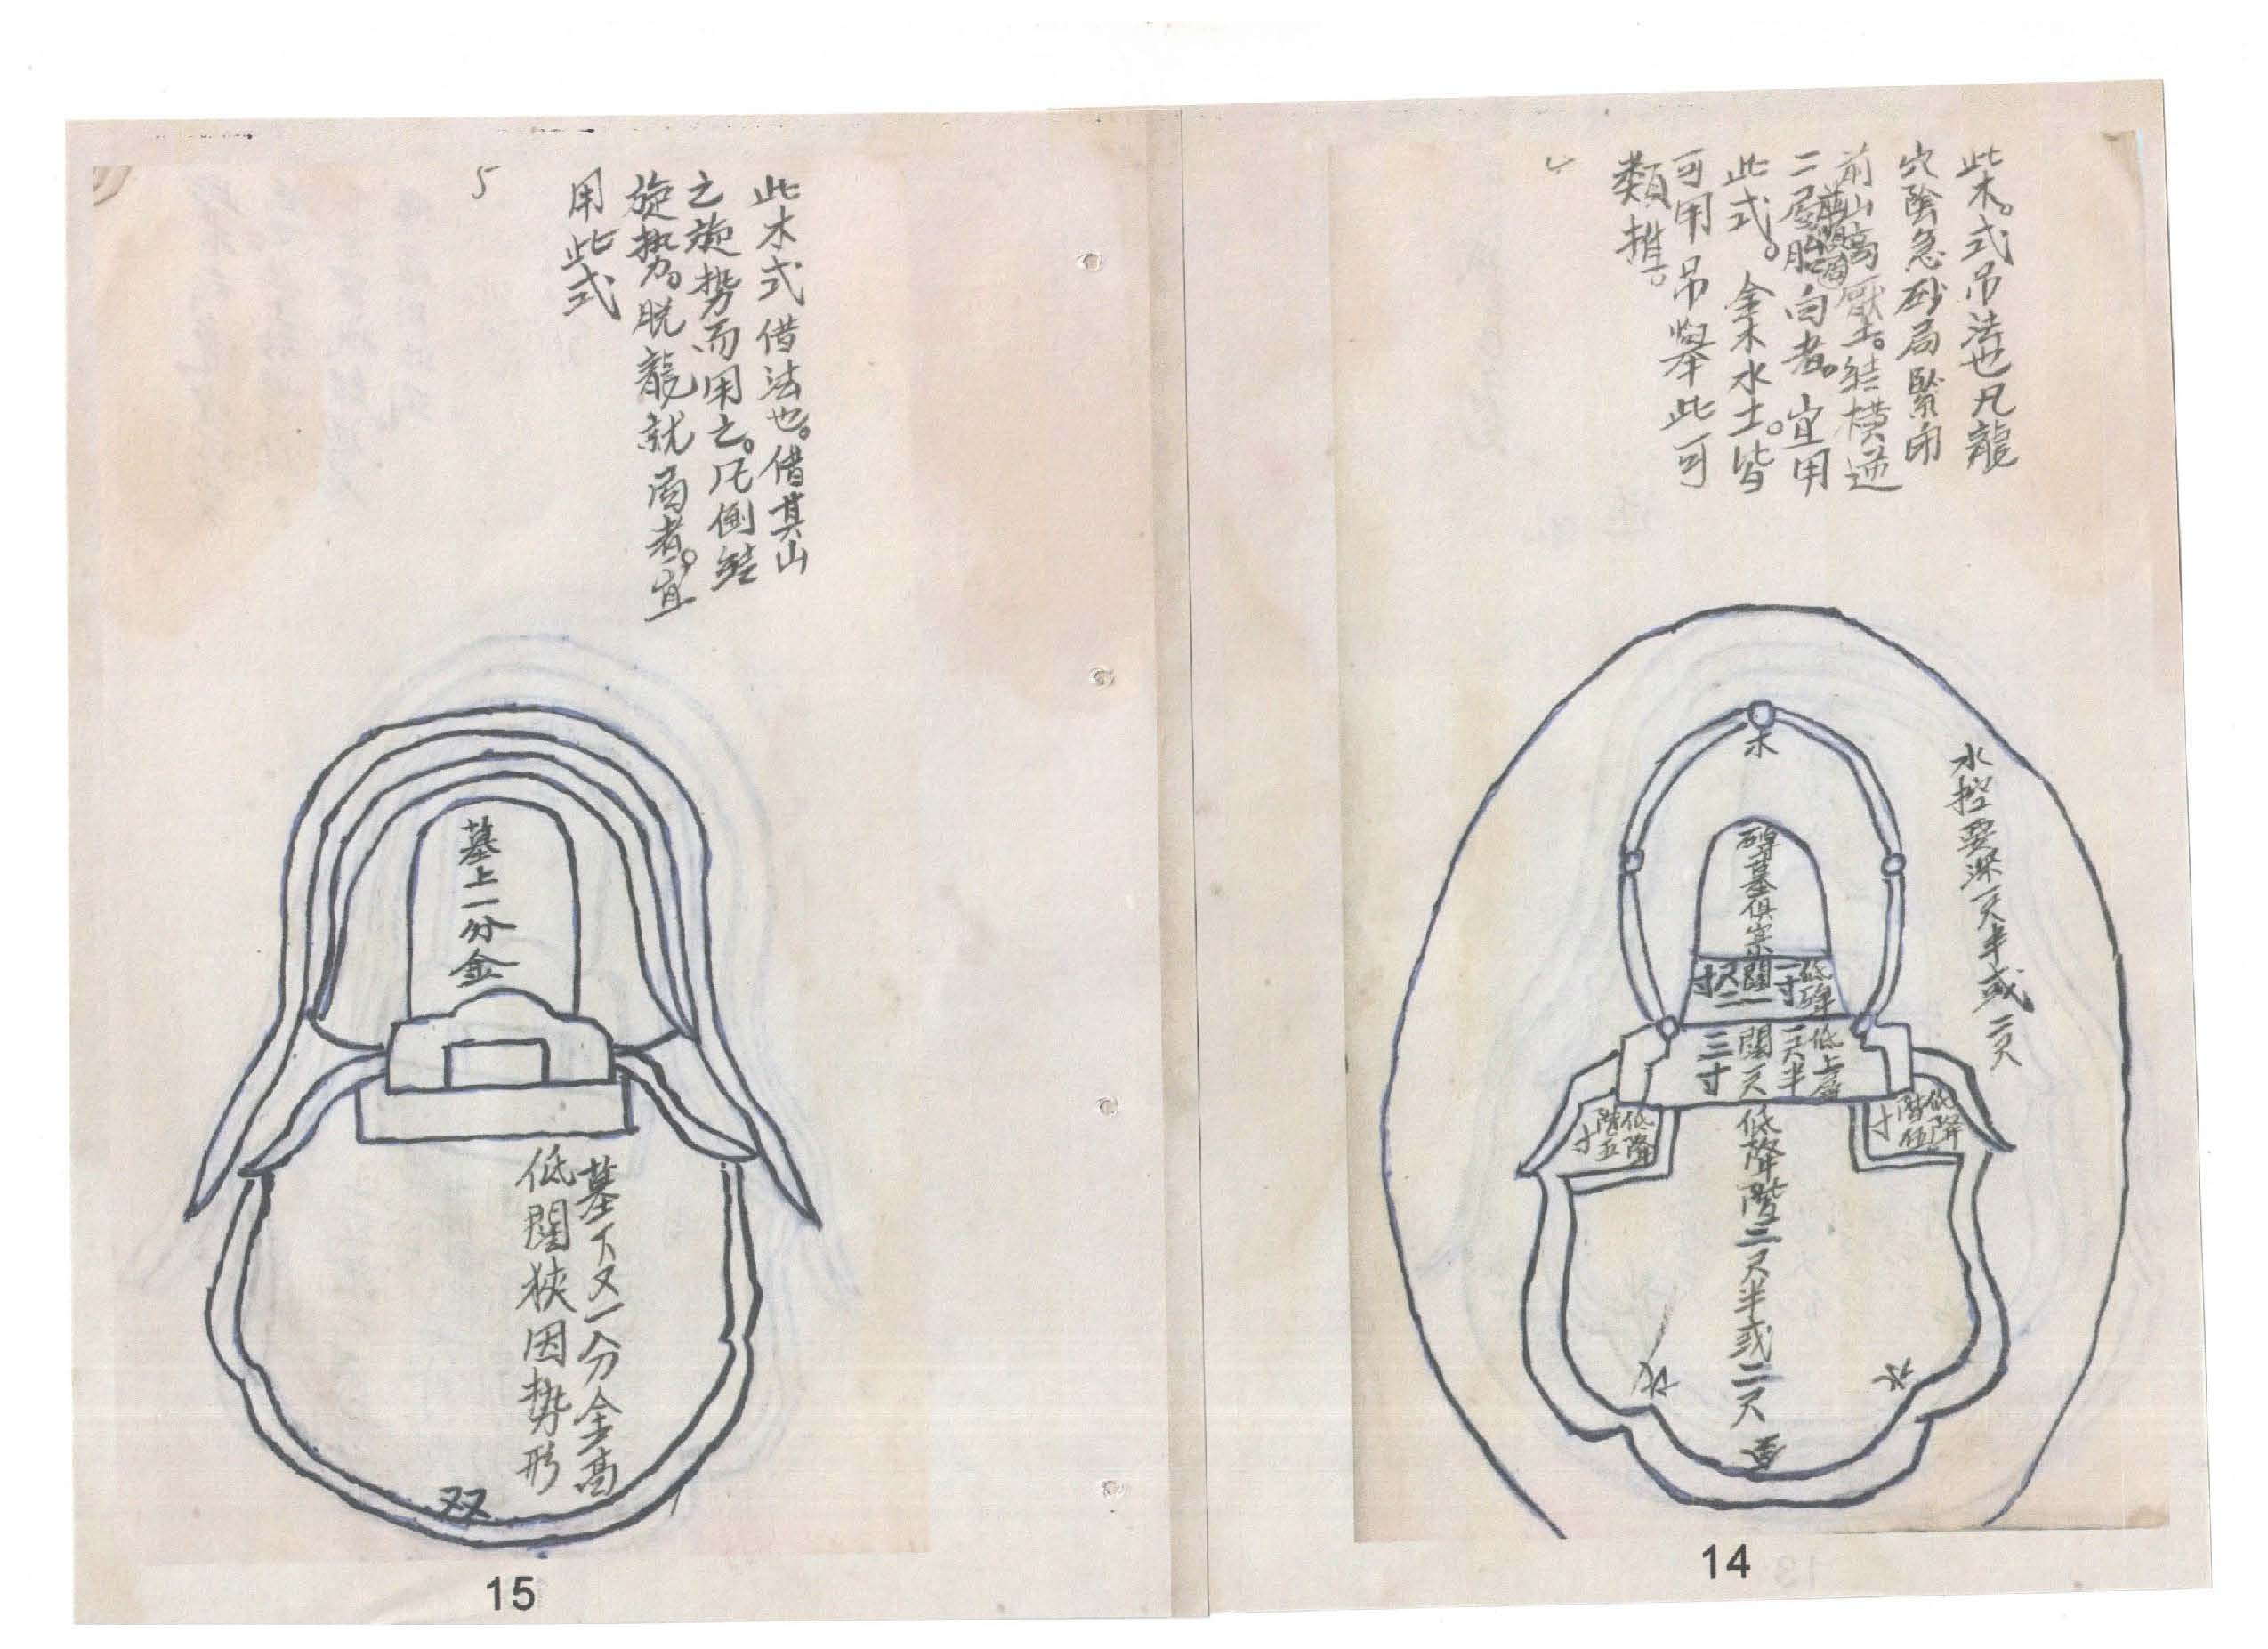 此木。式吊法也凡龍
穴陰急砂局緊閉
前山高壓主。結橫逆
二局胎向者。宜用
此式。金木水土。皆
可用吊舉此可
類推。
木
水控要深一尺半或二尺
碑墓俱
低碑
一寸
闊一
尺二
寸
低上層
一尺半
闊一尺
三寸
低降
階五
寸
低降
階伍
寸
低降階三尺半或二尺
水
水
14
5
此木式借法也。借其山
之旋勢而用之。凡倒結
旋势。脱龍就局者。宜
用此式
墓上一分金
墓下又一分金高
低闊狹因勢形
双
15